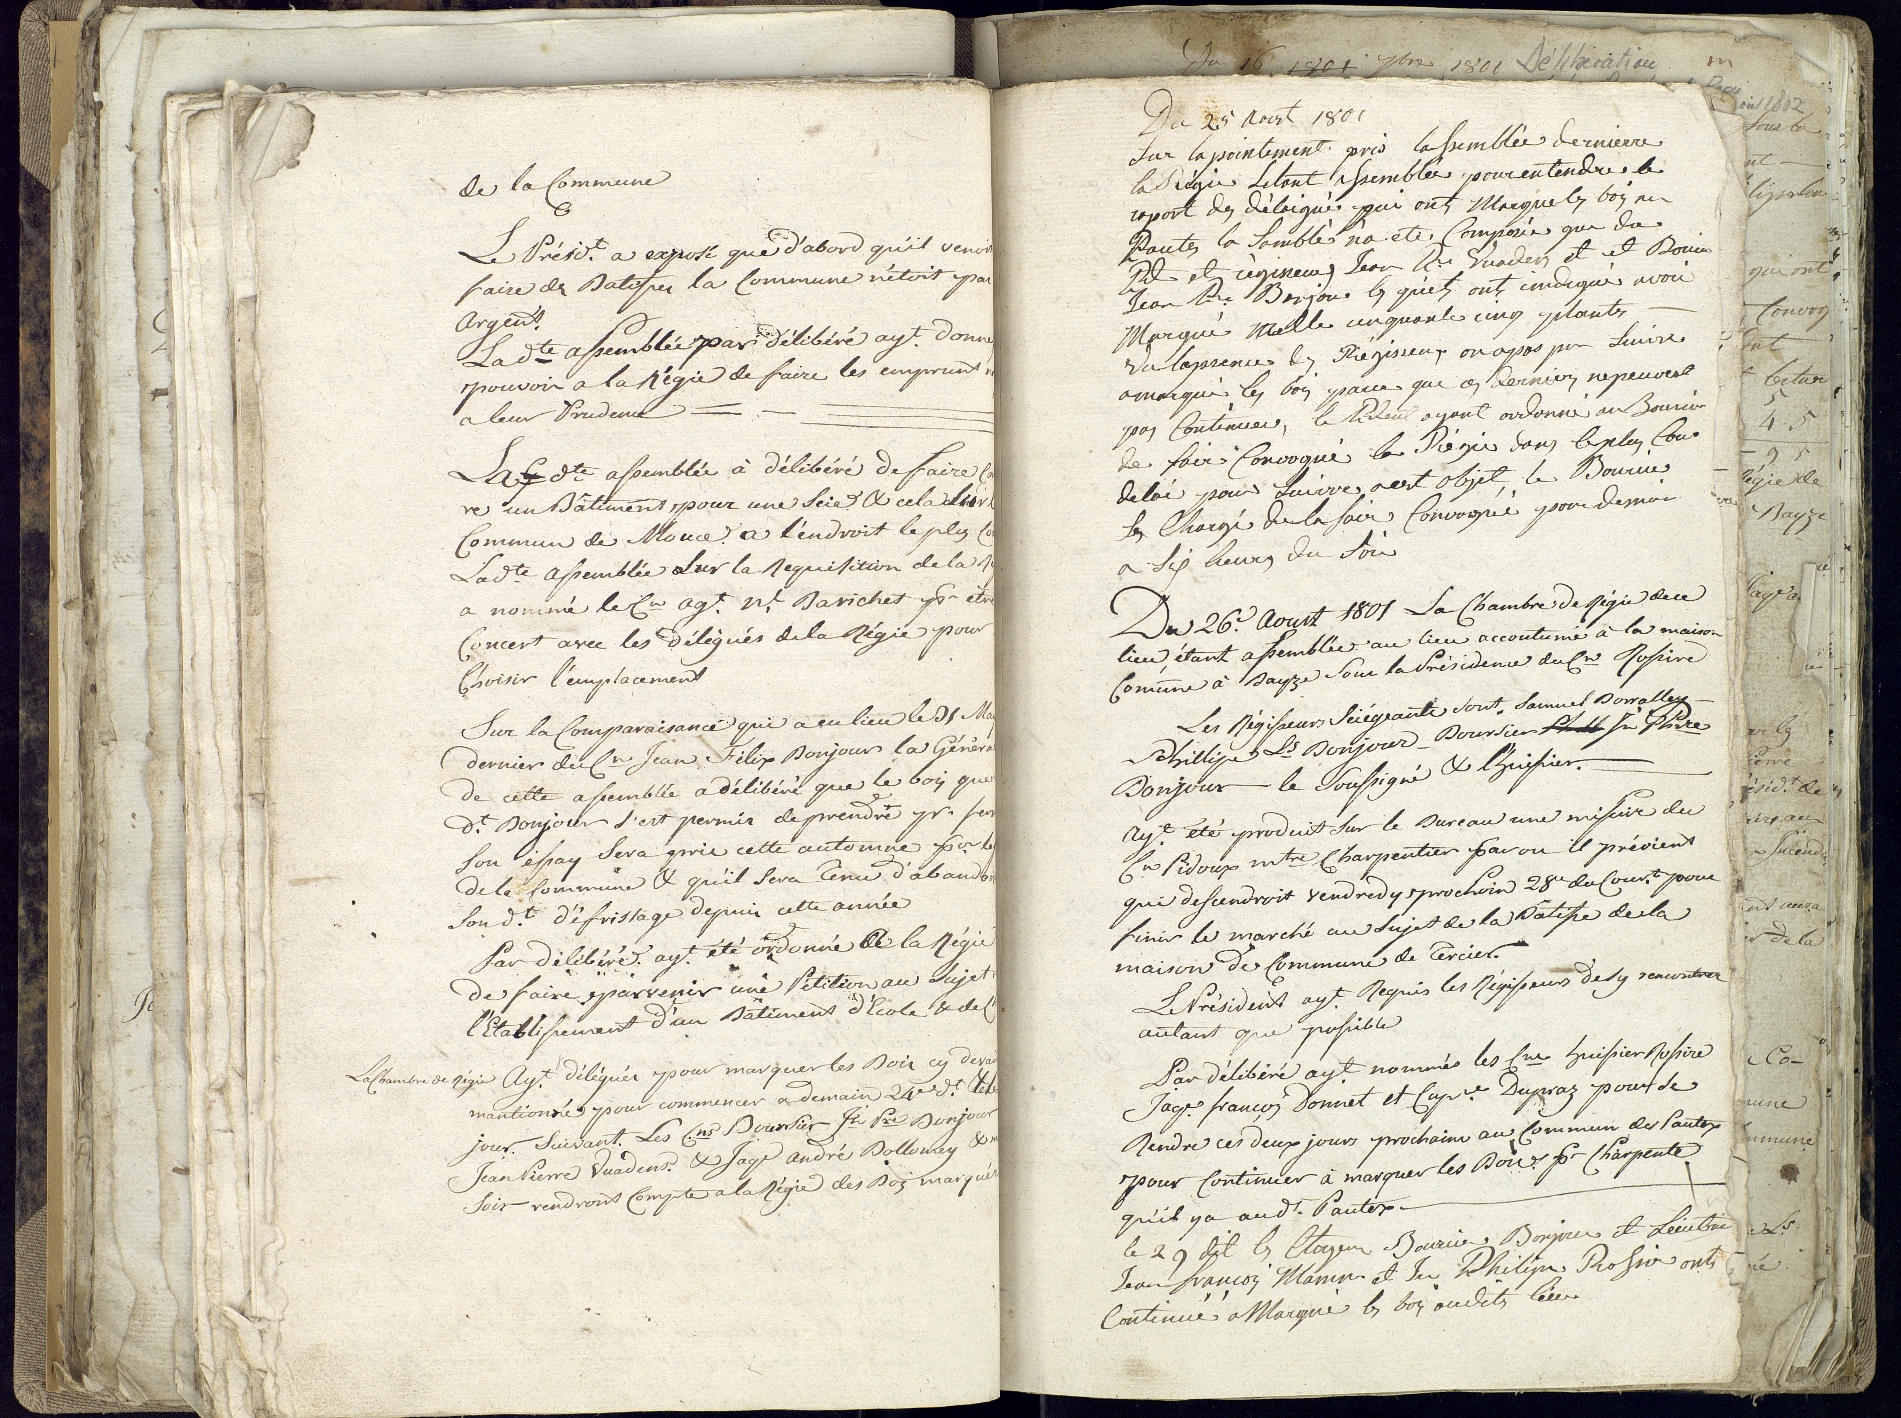 de la Commune
Le Présidt. a exposé que d'abord qu'il venoit
faire des Batisses la Commune n'étoit pas
Argent.
La dte assemblée par délibéré ayt. donné
pouvoir a la Régie de faire les emprunt
a leur Prudence
La dte assemblée à délibéré de faire
re un Bâtiment pour une Scie & cela sur
Commun de Mouce. a l'endroit le plus
La dte assemblée sur la Requisition de la
a nommé le Cn agt. nt. Davichet pr être
Concert avec les délégués de la Régie pour
Choisir l'emplacement
Sur la Comparaisance qui a eu lieu le 31 May
dernier du Cn Jean Félix Bonjour la Général
de cette assemblée a délibéré que le bois que
dt. Bonjour s'est permis de prendre pr. ferm
son éssay Sera pris cette automne pr. le
de la Commune & qu'il sera Tenu d'abandon
son dt. d'éfristage depuis cette année
Par délibéré. ayt. été ordonné de la Régie
de faire parvenir une Pétition au Sujet
l'Etablissement d'un Bâtiment d'Ecole & de
La Chambre de Régie Ayt. délégués pour marquer les Bois cy devan
mantionnés pour commencer a demain 24e dt. & le
jour Suivant. Les Cns Boursier Jn Pre Bonjour
Jean Pierre Vuadens. & Jaqe andré Dollomey &
Soir rendront Compte a la Régie des Bois marqués
Du 16 1801 7bre 1801 Délibération
Du 25 Aout 1801
Sur lapointement pris lassemblée derniere
la Régie Setant assemblée pour entendre le
raport des déleigués qui ont Marque les bois au
Pautex la Samblé na ete Composée que du
Pdt et régisseurs Jean Pre Vuadens et et Bouier
Jean Pre Bonjour les quels ont indiqué avoir
Marqué Mille cinquante cinq plantes
Vu lapsence des Régisseur on apas pu Suivre
amarqué les bois parce que ces derniers ne peuvent
pas Continuer, le Pident ayant ordonné au Boursier
de faire Convoqué la Régie dans le plus Cour
delai pour Suivre a cet objet, le Boursier
Es Chargé de la faire Convoqué pour demain
a Six heures du Soir
Du 26e. Aoust 1801 La Chambre de Régie de ce
lieu étant assemblée au lieu accoutumé à la maison
Comune à Dayze Sous la Présidence du Cn Rossire
Les Régisseurs Siégeants sont. Samuel Dorvallex
Phillipe Ls Bonjour Boursier Jn Pierre
Bonjour le Soussigné & l'huissier.
Ayt. été produit sur le Bureau une missive du
Cn Pidoux mtre Charpentier par ou il prévient
qui descendroit vendredy prochain 28e du Court. pour
finir le marché au Sujet de la Batisse de la
maison de Commune de Cercier.
Le Président ayt. Requis les Régisseurs de sy rencontrer
autant que possible
Par délibéré ayt. nommés les Cns huissier Rossire
Jaqe. françois Donnet et Capne Dupraz pour se
Rendre ces deux jours prochains au Commun des Pautex
pour Continuer à marquer les Bois pr Charpente
qu'il ya audt. Pautex
le 29 dit les Citoyens Boursier Bonjour et Lieutnan
Jean françois Mamin et Jn Philipe Rossire ont
Continué a Marqué les bois audits lieu